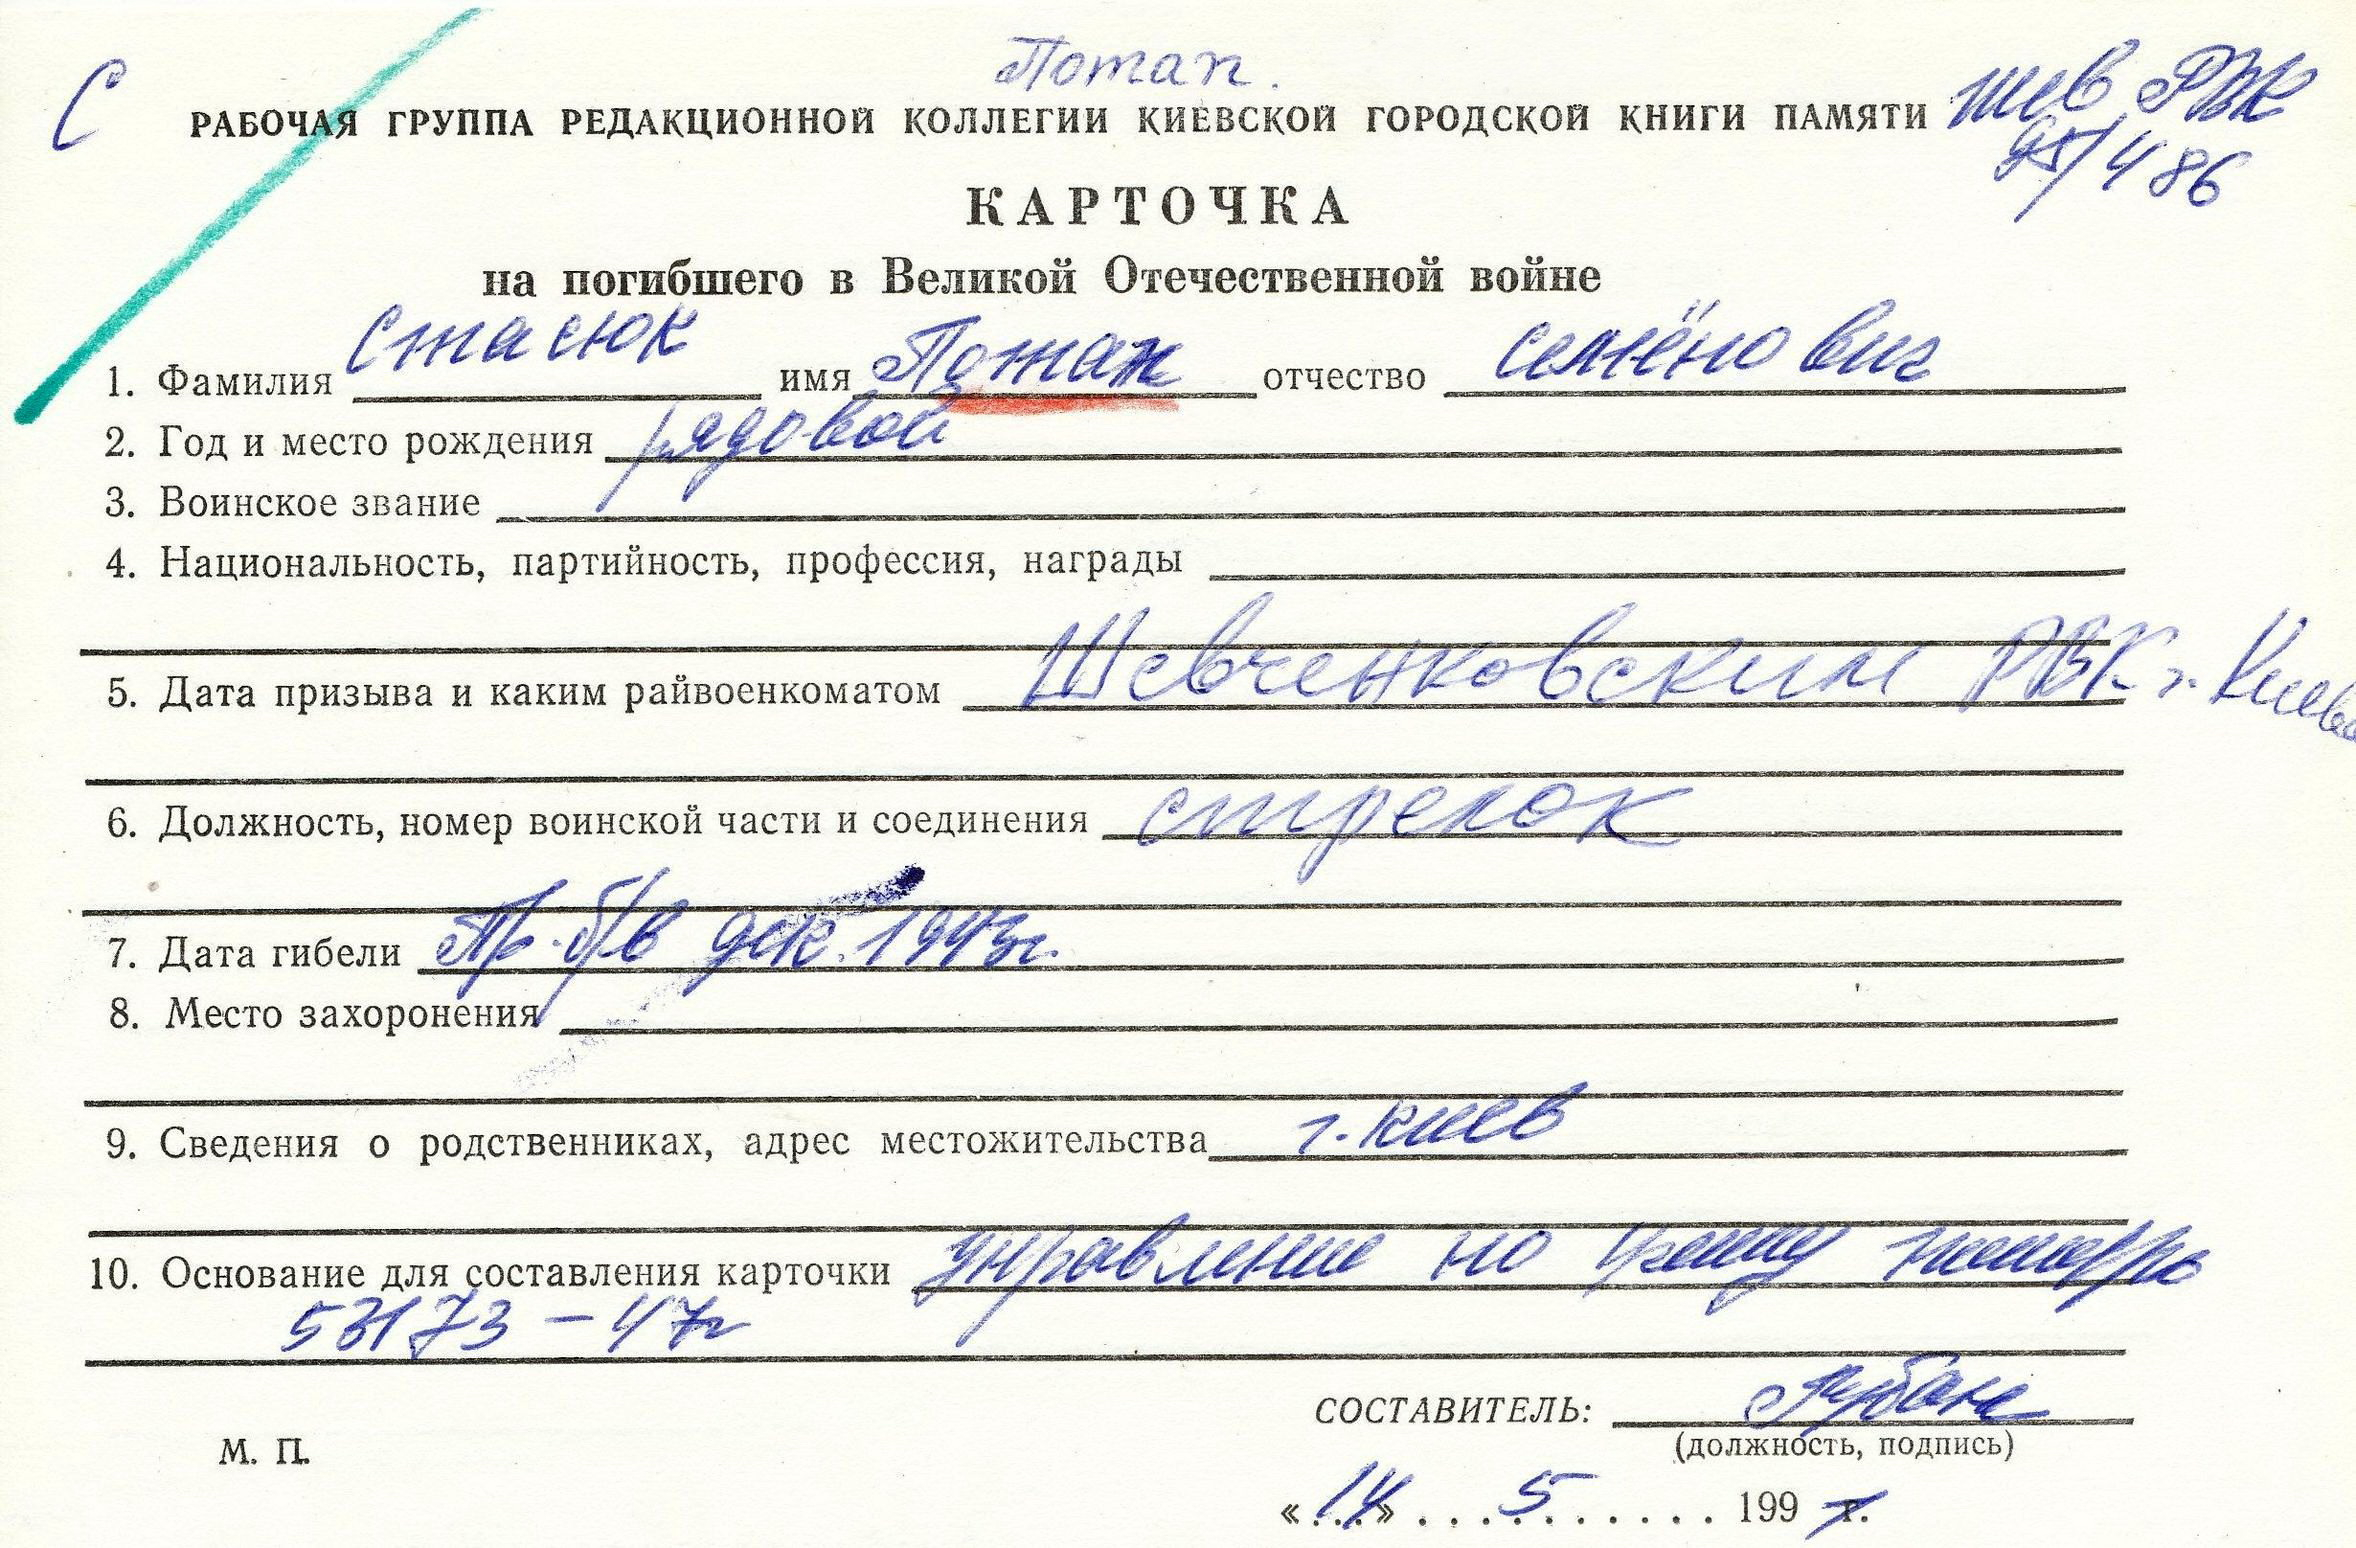 Потап.
С
РАБОЧАЯ ГРУППА РЕДАКЦИОННОЙ КОЛЛЕГИИ КИЕВСКОЙ ГОРОДСКОЙ КНИГИ ПАМЯТИ шев РВК
95/486
КАРТОЧКА
на погибшего в Великой Отечественной войне
1. Фамилия Стасюк имя Потап отчество Семёнович
2. Год и место рождения рядовой
3. Воинское звание
4. Национальность, партийность, профессия, награды
5. Дата призыва и каким райвоенкоматом Шевченковским РВК г. Киева
6. Должность, номер воинской части и соединения стрелок
7. Дата гибели Пр. б/в дек. 1943г.
8. Место захоронения
9. Сведения о родственниках, адрес местожительства г. Киев
10. Основание для составления карточки управление по учету потерь
53173 – 47г
СОСТАВИТЕЛЬ:
(должность, подпись)
М. П.
«14» 5 199 г.